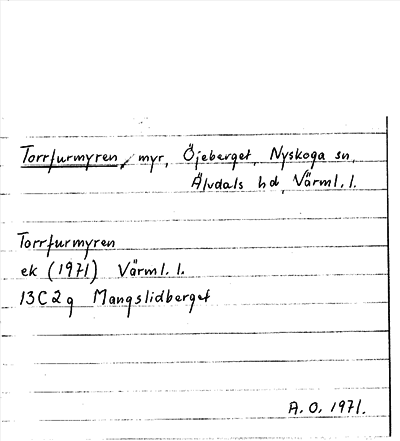 Torrfurmyren, myr, Öjeberget, Nyskoga sn,
Älvdals hd, Värml. l.
Torrfurmyren
ek (1971) Värml. l.
13C2g Mangslidberget
A. O. 1971.